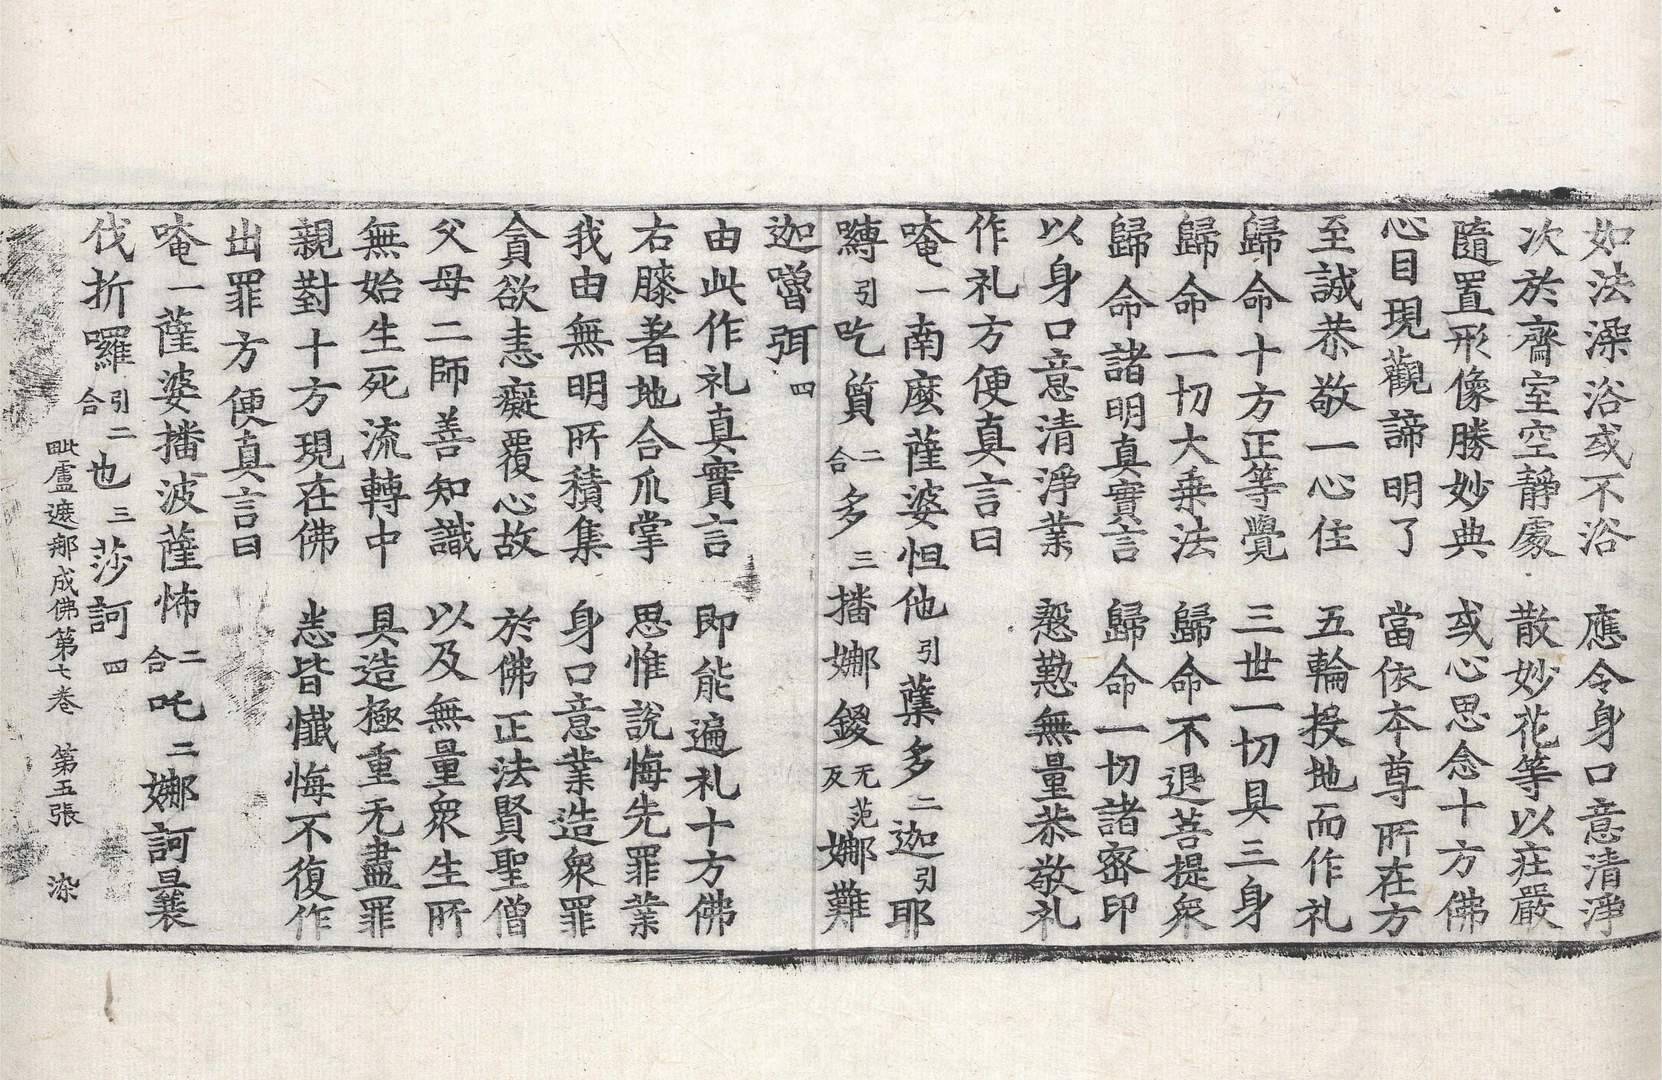 如法澡浴或不浴　應令身口意清淨
次於齋室空靜處　散妙花等以庄嚴
隨置形像勝妙典　或心思念十方佛
心目現觀諦明了　當依本尊所在方
至誠恭敬一心住　五輪投地而作礼
歸命十方正等覺　三世一切具三身
歸命一切大乗法　歸命不退菩提衆
歸命諸明真實言　歸命一切諸密印
以身口意清淨業　慇懃無量恭敬礼
作礼方便真言曰
唵一南麼薩婆怛他引蘖多二迦引耶
嚩引吃質二合多三播娜鑁无范反娜難
迦嚕弭四
由此作礼真實言　即能遍礼十方佛
右膝著地合爪掌　思惟說悔先罪業
我由無明所積集　身口意業造衆罪
貪欲恚癡覆心故　於佛正法賢聖僧
父母二師善知識　以及無量衆生所
無始生死流轉中　具造極重无盡罪
親對十方現在佛　悉皆懺悔不復作
出罪方便真言曰
唵一薩婆播波薩怖二合吒二娜訶曩
伐折囉引二合也三莎訶四
毗盧遮那成佛第七卷　第五張　染